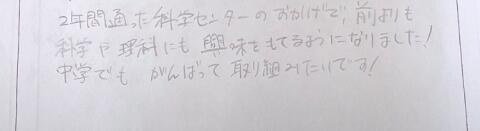 2年間通った科学センターのおかげで、前よりも
科学や理科にも興味をもてるようになりました!
中学でも がんばって取り組みたいです!